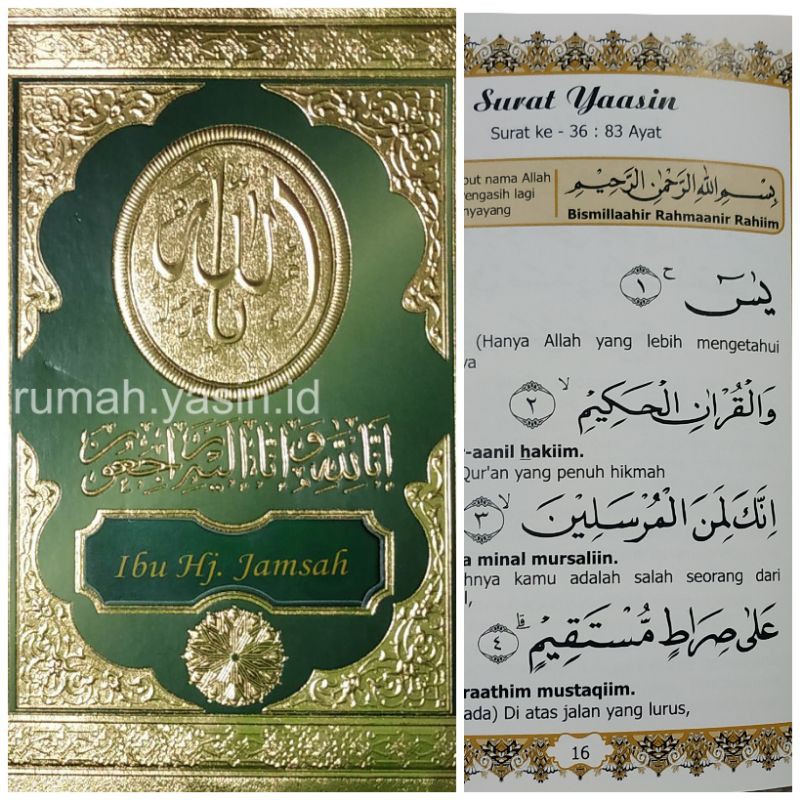 الله
rumah.yasin.id
إنا لله وإنا إليه راجعون
Ibu Hj. Jamsah
Surat Yaasin
Surat ke - 36 : 83 Ayat
but nama Allah
engasih lagi
nyayang
بِسْمِ اللهِ الرَّحْمٰنِ الرَّحِيْمِ
Bismillaahir Rahmaanir Rahiim
يٰسٓ ۚ ١
(Hanya Allah yang lebih mengetahui
ya
وَالْقُرْاٰنِ الْحَكِيْمِ ۙ ٢
-aanil hakiim.
Qur'an yang penuh hikmah
اِنَّكَ لَمِنَ الْمُرْسَلِيْنَ ۙ ٣
a minal mursaliin.
hnya kamu adalah salah seorang dari
l,
عَلٰى صِرَاطٍ مُّسْتَقِيْمٍ ۗ ٤
raathim mustaqiim.
ada) Di atas jalan yang lurus,
16